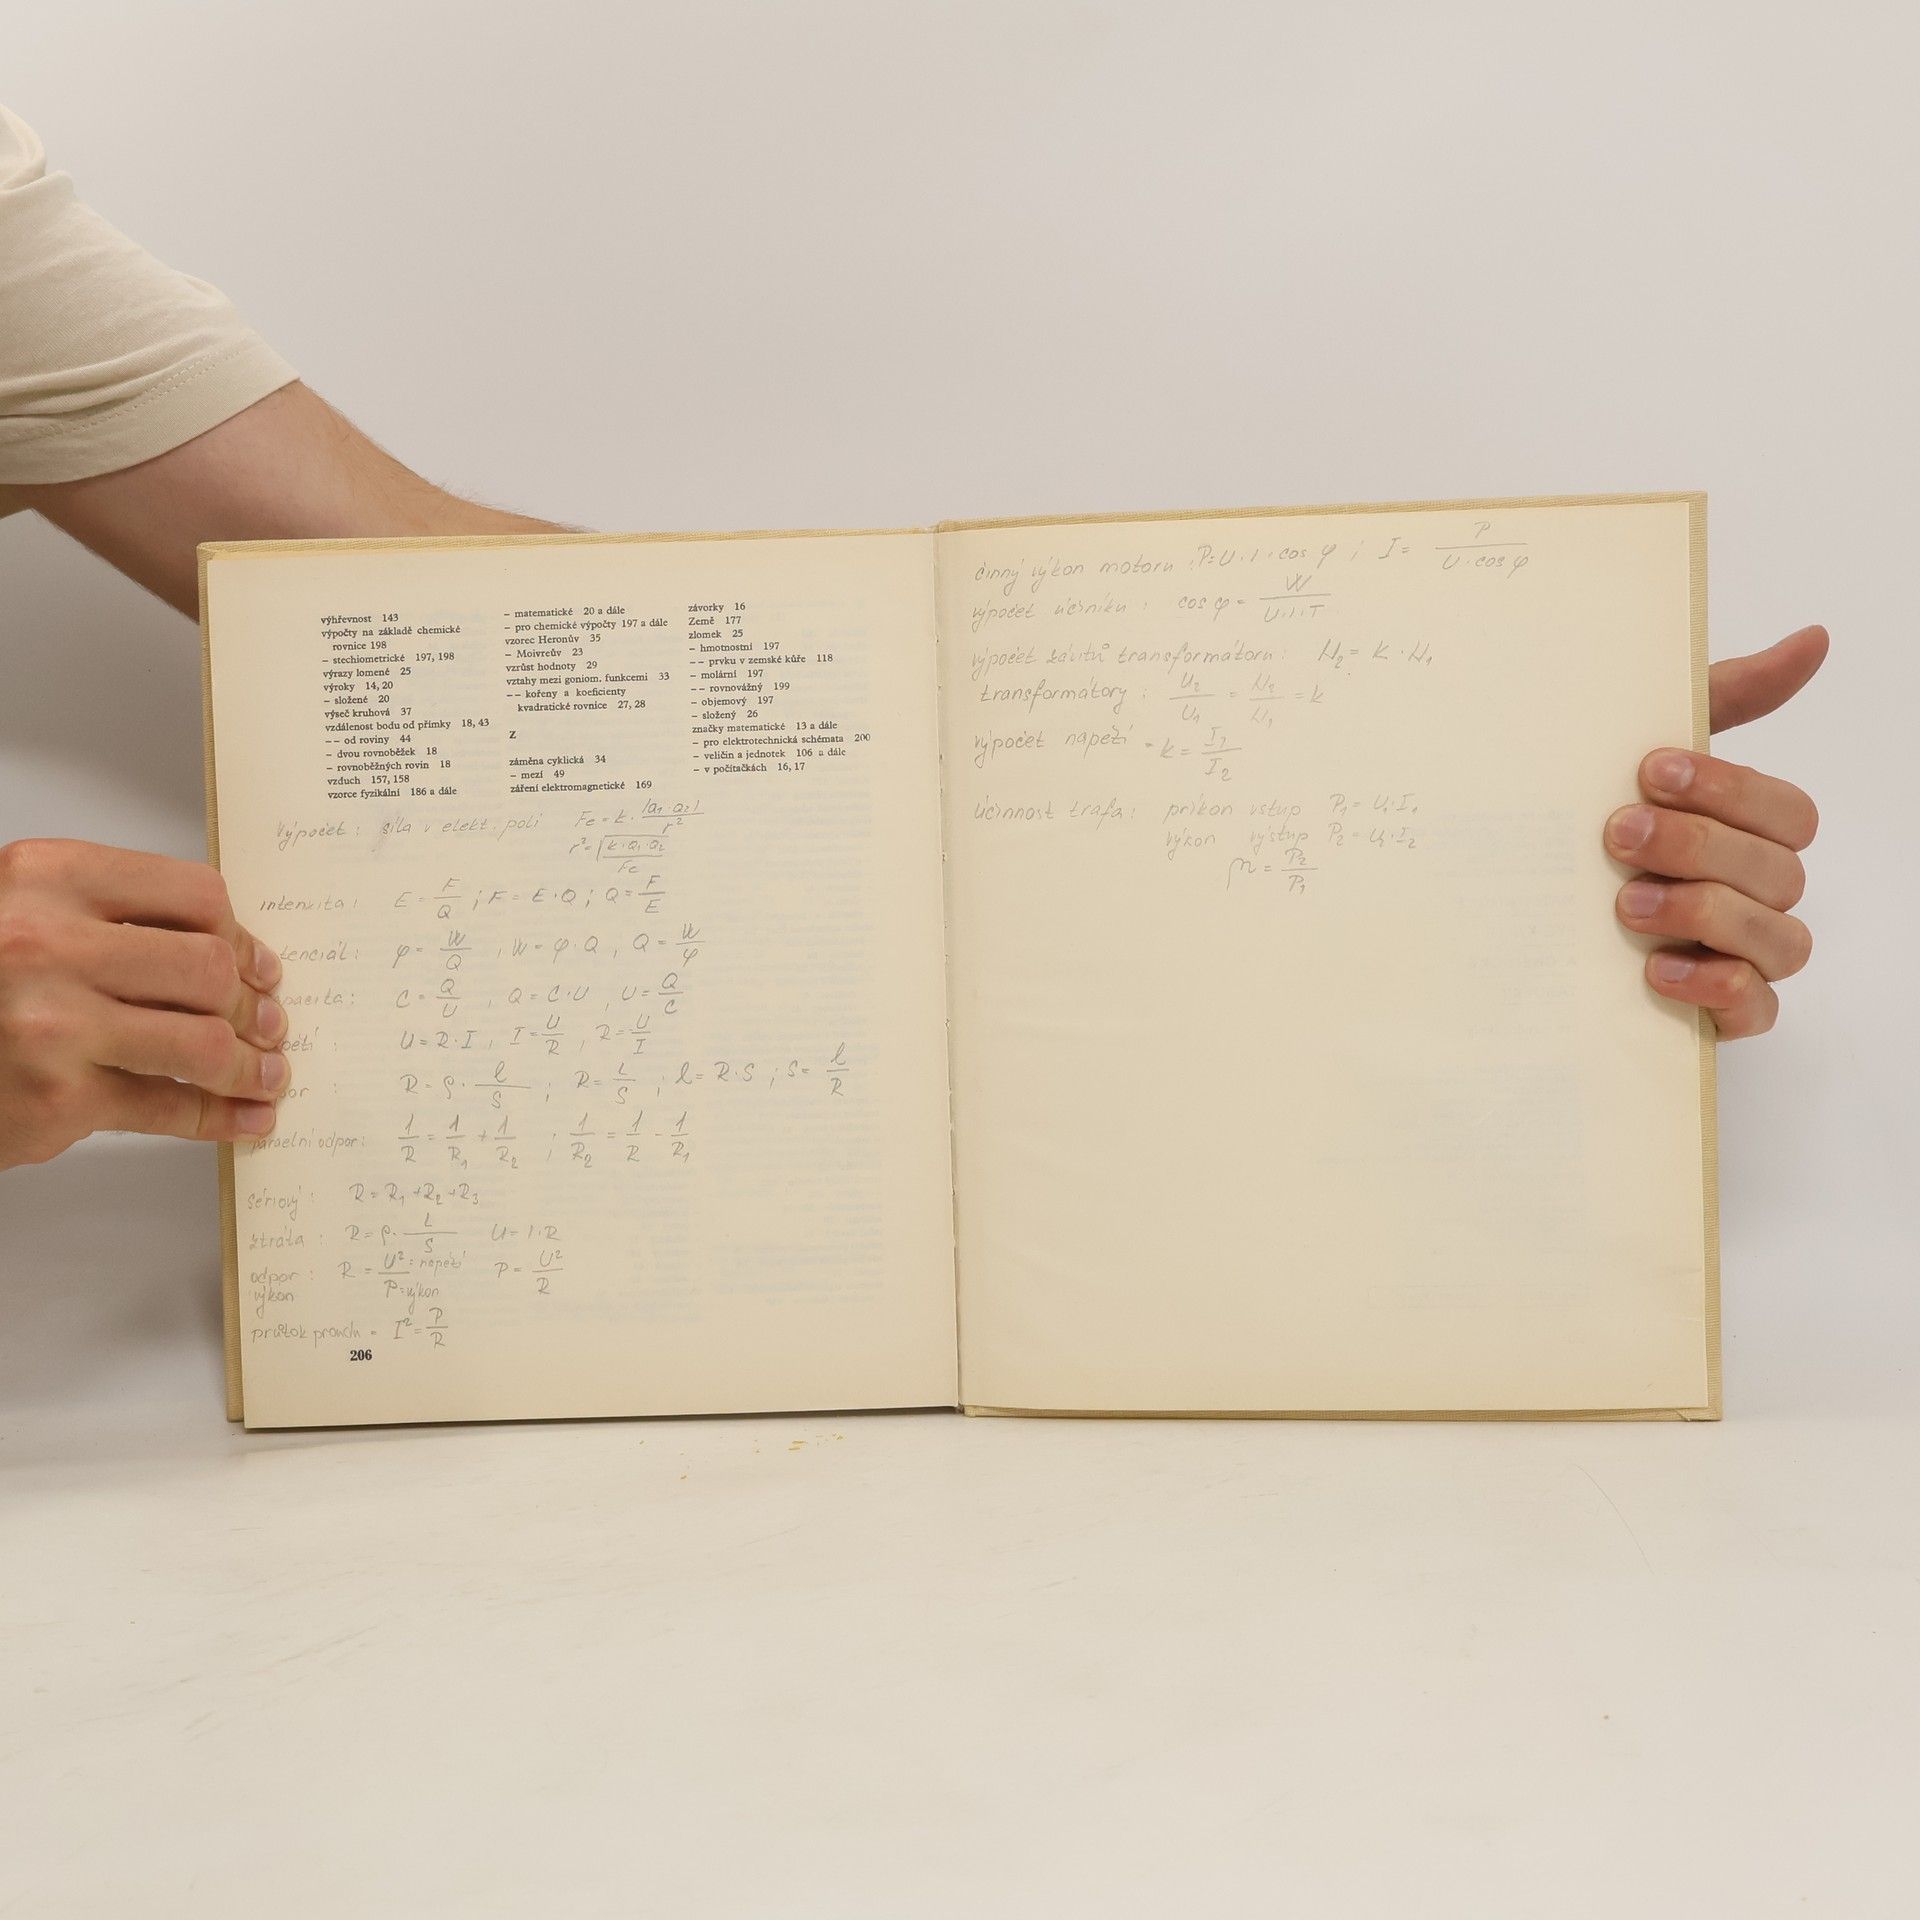 výhřevnost 143
výpočty na základě chemické
rovnice 198
– stechiometrické 197, 198
výrazy lomené 25
výroky 14, 20
– složené 20
výseč kruhová 37
vzdálenost bodu od přímky 18, 43
– – od roviny 44
– dvou rovnoběžek 18
– rovnoběžných rovin 18
vzduch 157, 158
vzorce fyzikální 186 a dále
– matematické 20 a dále
– pro chemické výpočty 197 a dále
vzorec Heronův 35
– Moivreův 23
vzrůst hodnoty 29
vztahy mezi goniom. funkcemi 33
– – kořeny a koeficienty
kvadratické rovnice 27, 28
Z
záměna cyklická 34
– mezí 49
záření elektromagnetické 169
závorky 16
Země 177
zlomek 25
– hmotnostní 197
– – prvku v zemské kůře 118
– molární 197
– – rovnovážný 199
– objemový 197
– složený 26
značky matematické 13 a dále
– pro elektrotechnická schémata 200
– veličin a jednotek 106 a dále
– v počítačkách 16, 17
výpočet : síla v elekt. poli Fe = k · |Q1 · Q2| / r²
r² = √(k · Q1 · Q2 / Fe)
intenzita : E = F/Q ; F = E · Q ; Q = F/E
tenciál : φ = W/Q , W = φ · Q , Q = W/φ
pacita : C = Q/U , Q = C · U , U = Q/C
pětí : U = R · I , I = U/R , R = U/I
or : R = ρ · l/S ; R = L/S ; l = R · S ; S = l/R
paraelní odpor : 1/R = 1/R1 + 1/R2 ; 1/R2 = 1/R - 1/R1
sériový : R = R1 + R2 + R3
ztráta : R = ρ · L/S U = I · R
odpor : R = U² = napětí / P = výkon P = U²/R
výkon
průtok proudu = I² = P/R
206
činný výkon motoru : P = U · I · cos φ ; I = P / U · cos φ
výpočet účiníku : cos φ = W / U · I · T
výpočet závitů transformátoru : N2 = k · N1
transformátory : U2/U1 = N2/N1 = k
výpočet napětí - k = I1/I2
účinnost trafa : příkon vstup P1 = U1 · I1
výkon výstup P2 = U2 · I2
η = P2/P1